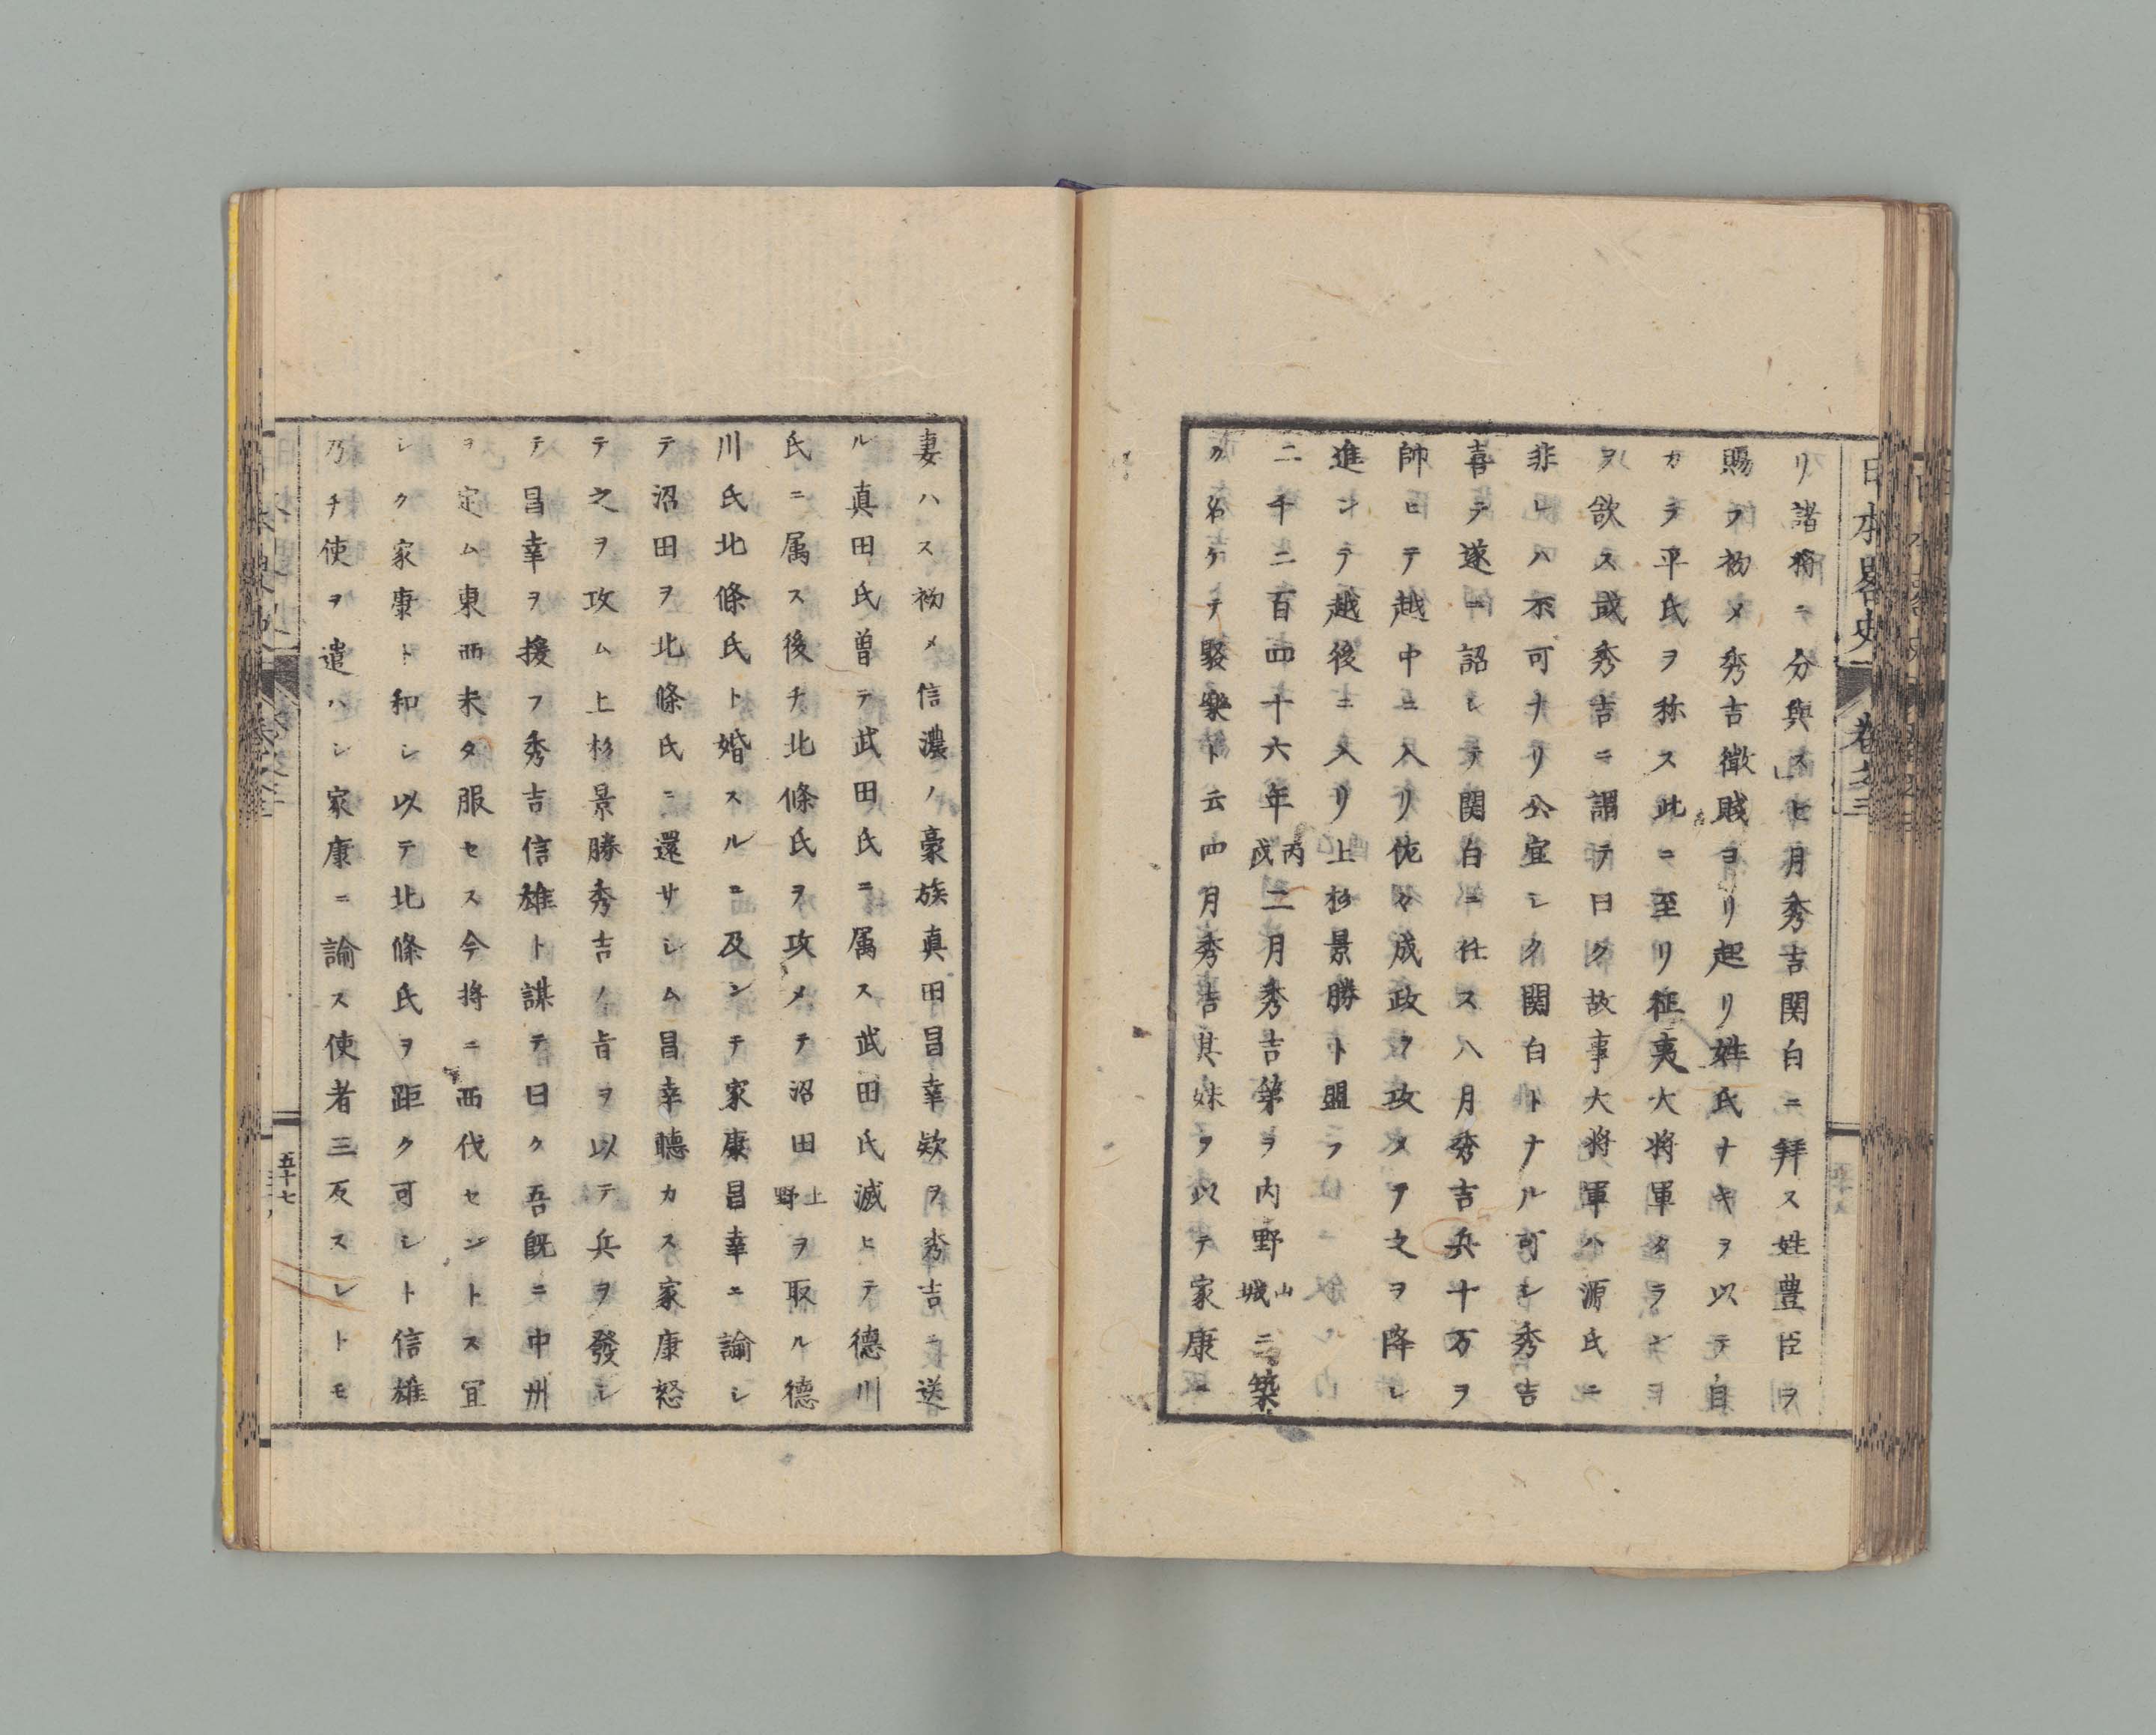 日本畧史 卷之三
リ諸將ニ分與ス七月秀吉関白ニ拜ス姓豊臣ヲ
賜フ初メ秀吉微賎ヨリ起リ姓氏ナキヲ以テ自
カラ平氏ヲ称ス此ニ至リ征夷大将軍タランヿ
ヲ欲ス或秀吉ニ謂テ曰ク故事大将軍ハ源氏ニ
非レハ不可ナリ公宜シク関白トナル可シ秀吉
喜テ遂ニ詔シテ関白ニ任ス八月秀吉兵十万ヲ
帥ヒテ越中ニ入リ佐々成政ヲ攻メテ之ヲ降シ
進ンテ越後ニ入リ上杉景勝ト盟フ
二千二百四十六年丙戌二月秀吉第ヲ内野山城ニ築
カ名ケテ聚樂ト云四月秀吉其妹ヲ以テ家康ニ
妻ハス初メ信濃ノ豪族真田昌幸欵ヲ秀吉ニ送
ル真田氏曽テ武田氏ニ属ス武田氏滅ヒテ德川
氏ニ属ス後チ北條氏ヲ攻メテ沼田上野ヲ取ル德
川氏北條氏ト婚スルニ及ンテ家康昌幸ニ諭シ
テ沼田ヲ北條氏ニ還サシム昌幸聽カス家康怒
テ之ヲ攻ム上杉景勝秀吉ノ旨ヲ以テ兵ヲ發シ
テ昌幸ヲ援フ秀吉信雄ト謀テ曰ク吾既ニ中州
ヲ定ム東西未タ服セス今将ニ西伐セントス宜
シク家康ト和シ以テ北條氏ヲ距ク可シト信雄
乃チ使ヲ遣ハシ家康ニ諭ス使者三反スレトモ
五十七